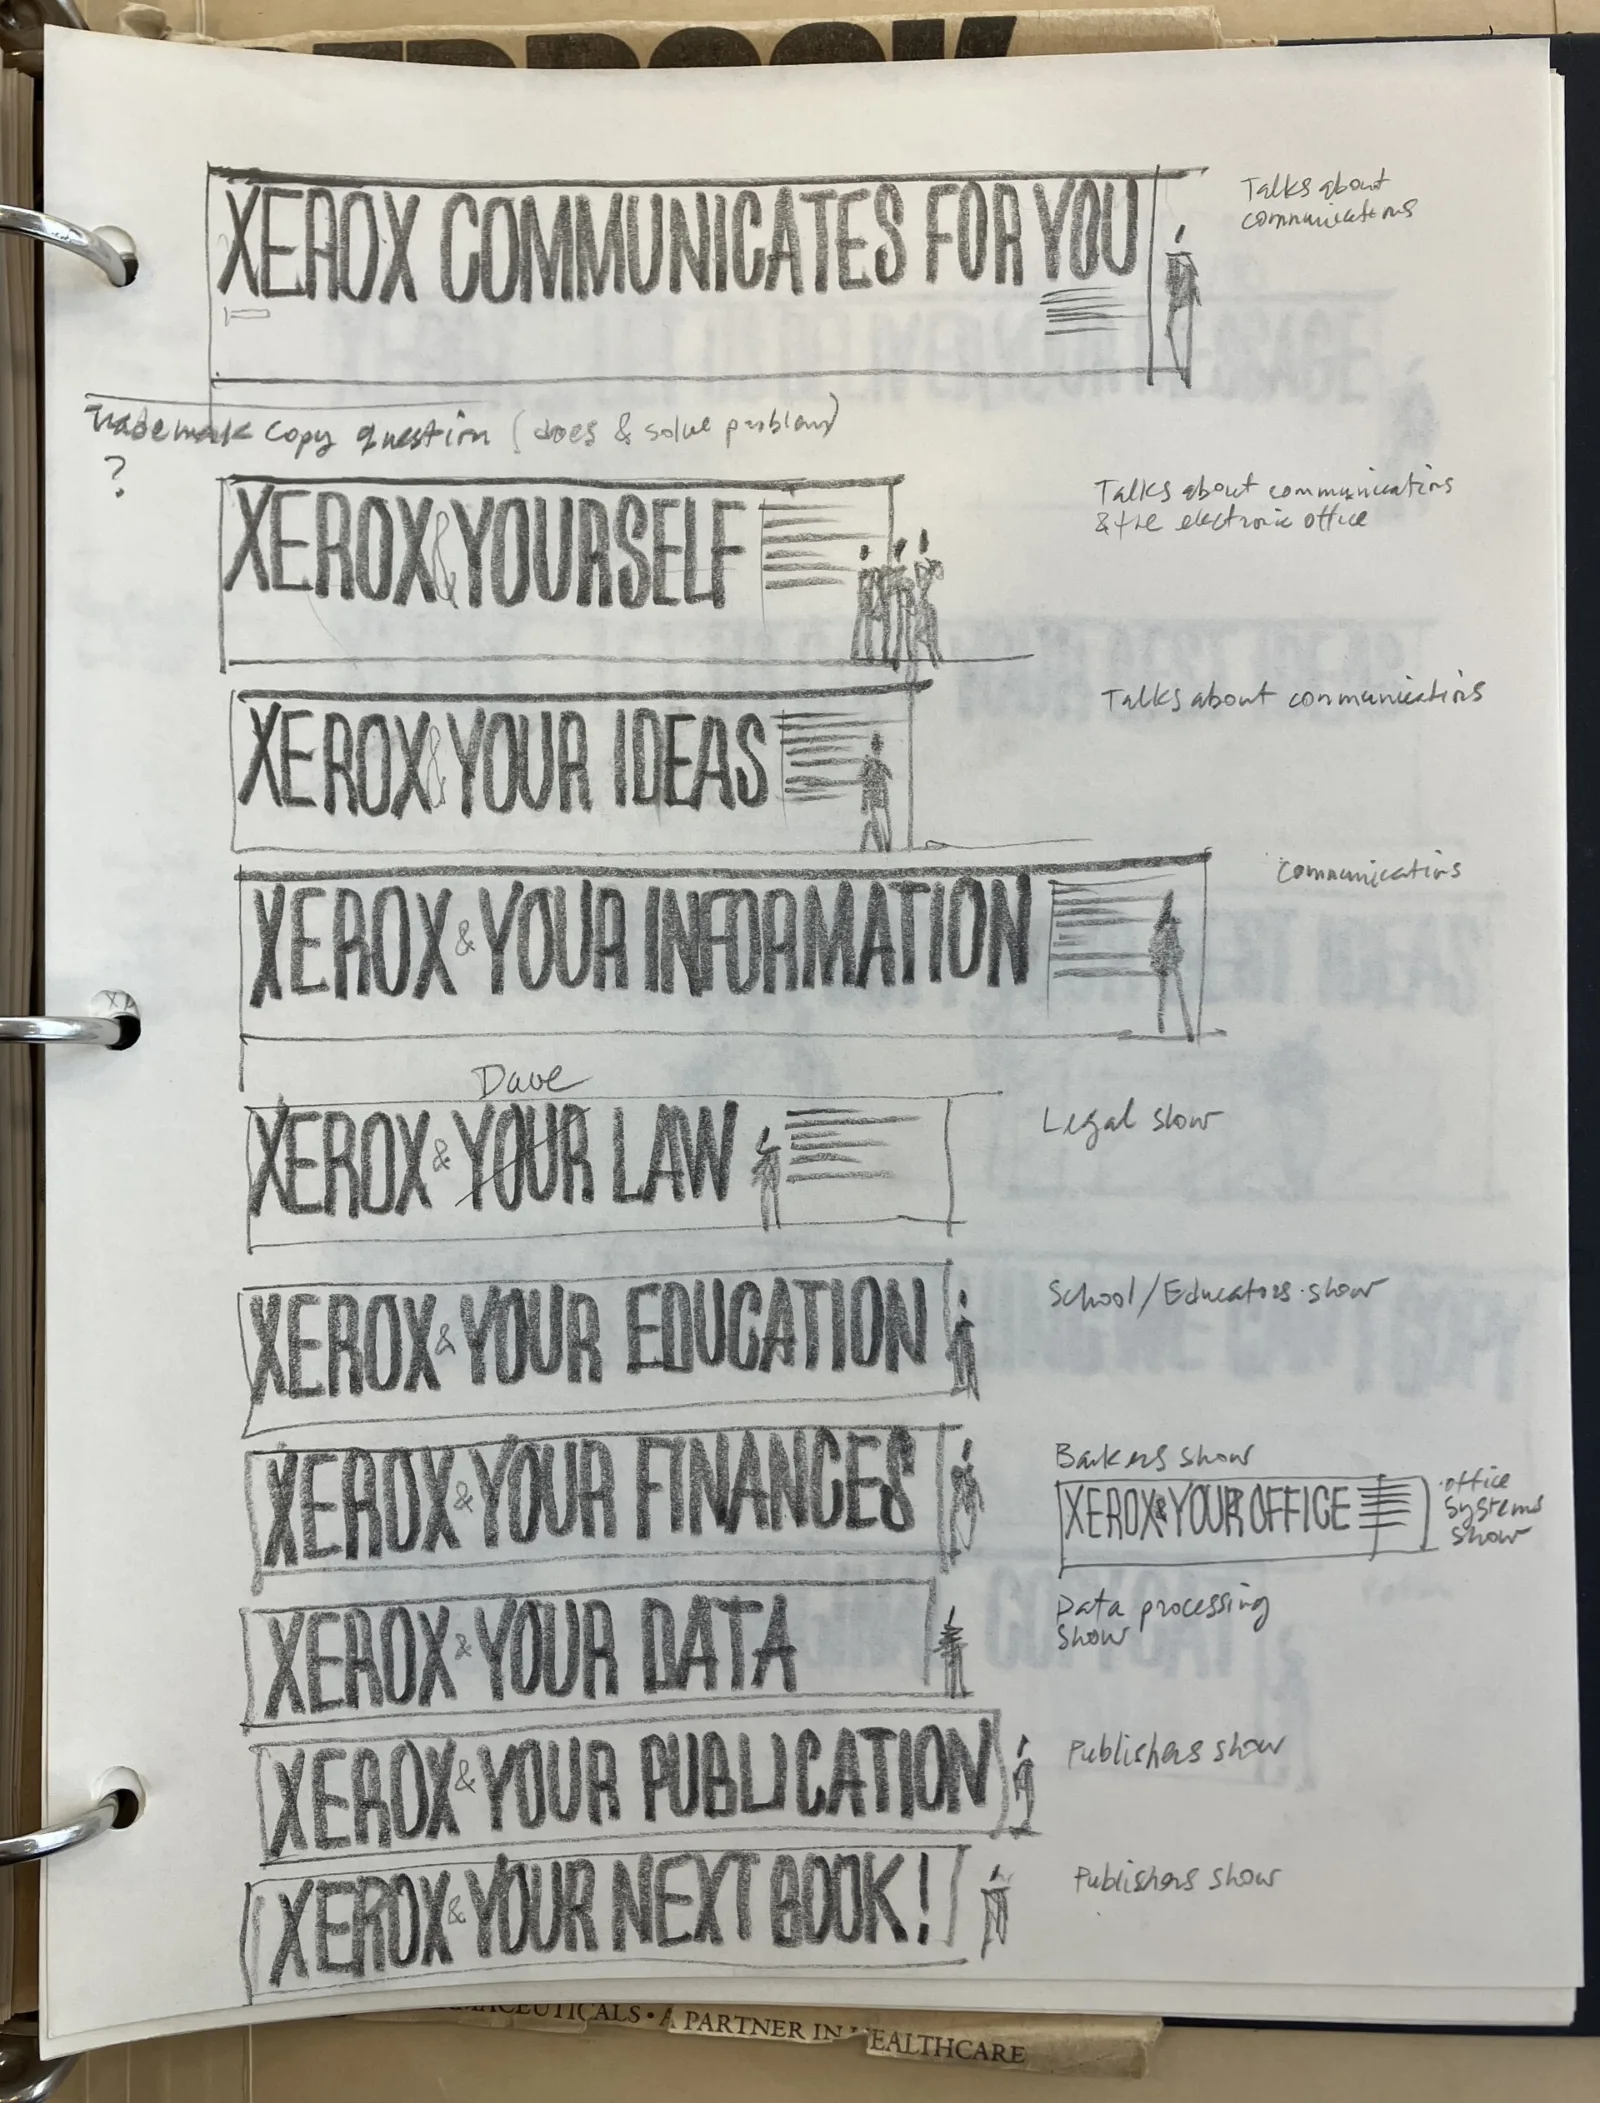 XEROX COMMUNICATES FOR YOU
Talks about
communications
Trademark copy question (does & solve problem)
?
XEROX & YOURSELF
Talks about communications
& the electronic office
XEROX & YOUR IDEAS
Talks about communications
XEROX & YOUR INFORMATION
Communications
Dave
XEROX & YOUR LAW
Legal show
XEROX & YOUR EDUCATION
School/Educators show
XEROX & YOUR FINANCES
Bankers show
XEROX & YOUR OFFICE
office
systems
show
XEROX & YOUR DATA
Data processing
show
XEROX & YOUR PUBLICATION
Publishers show
XEROX & YOUR NEXT BOOK!
Publishers show
A PARTNER IN HEALTHCARE